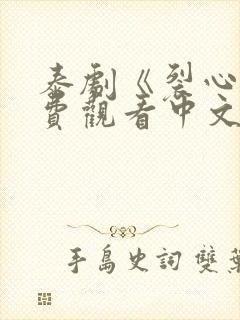 泰劇《裂心
費觀看中文
手島史詞 雙葉